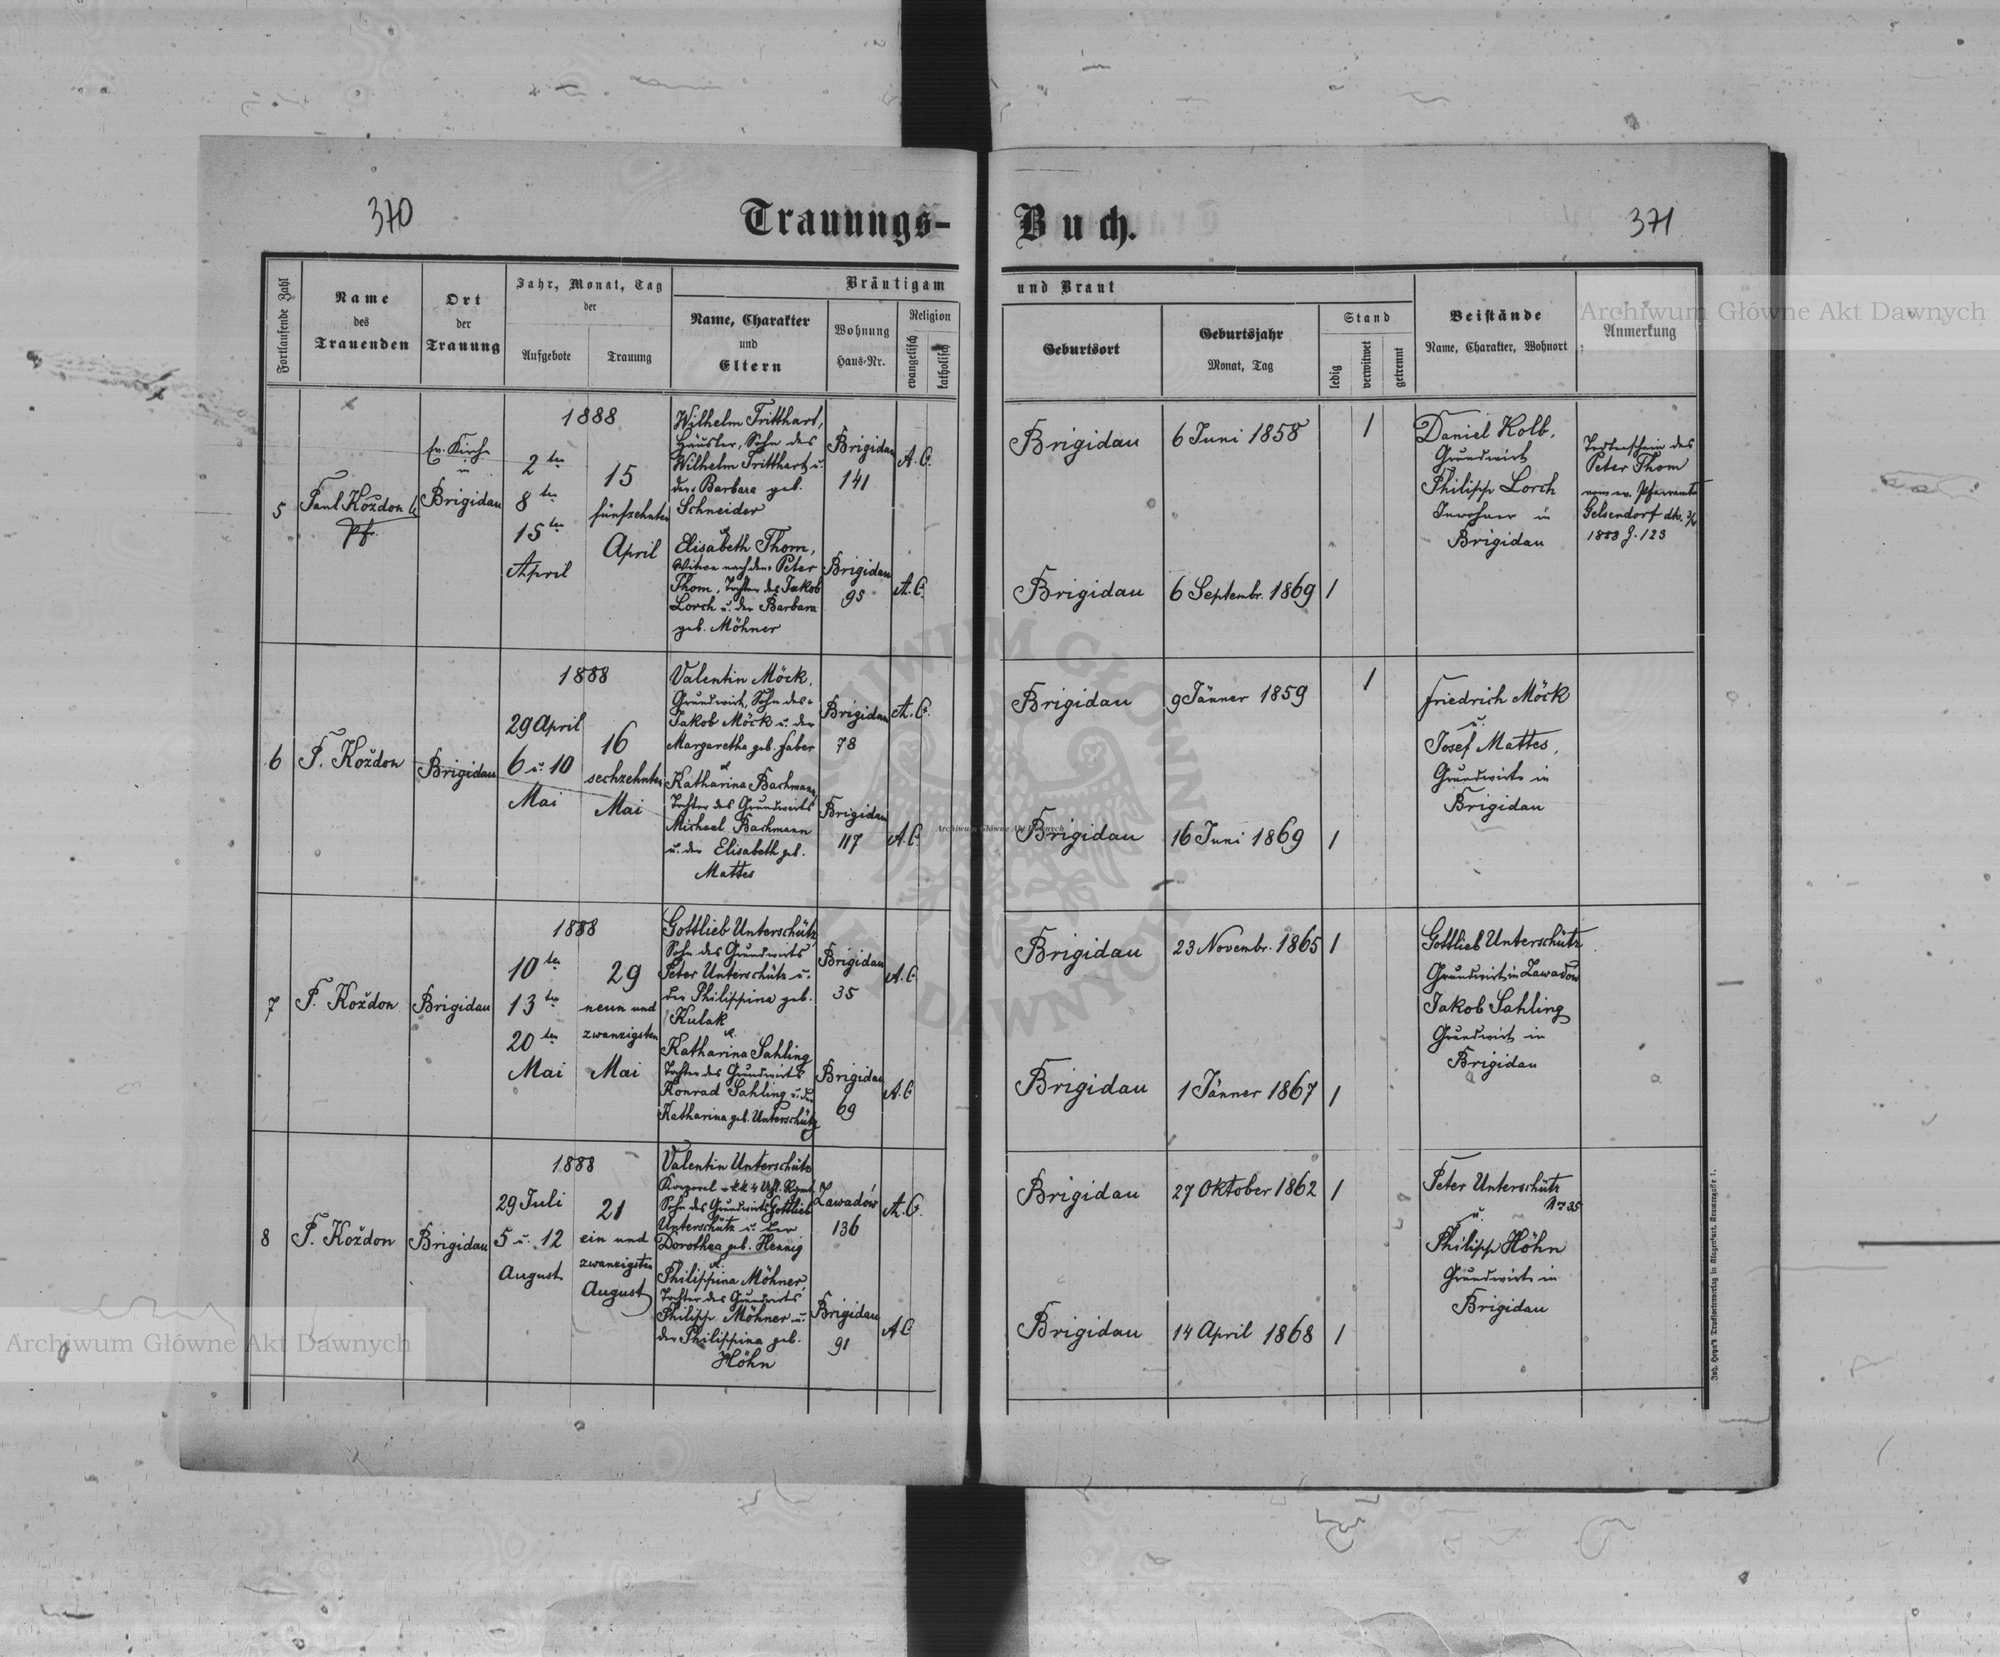 370
Trauungs-
Buch.
371
Fortlaufende Zahl
Name
des
Trauenden
Ort
der
Trauung
Jahr, Monat, Tag
der
Aufgebote
Trauung
Bräutigam
und Braut
Name, Charakter
und
Eltern
Wohnung
Haus-Nr.
Religion
evangelisch
katholisch
Geburtsort
Geburtsjahr
Monat, Tag
Stand
ledig
verwitwet
getrennt
Beistände
Name, Charakter, Wohnort
Anmerkung
5
Paul Koždon
Pfr.
Ev. Kirche
in
Brigidau
1888
2ten
8ten
15ten
April
15
fünfzehnten
April
Wilhelm Tritthart,
Häusler, Sohn des
Wilhelm Tritthart u.
der Barbara geb.
Schneider
Brigidau
141
A. C.
Brigidau
6 Juni 1858
1
&
Elisabeth Thom,
Witwe nach dem Peter
Thom, Tochter des Jakob
Lorch u. der Barbara
geb. Möhner
Brigidau
95
A. C.
Brigidau
6 Septembr. 1869
1
Daniel Kolb,
Grundwirt
Philipp Lorch
Inwohner in
Brigidau
Totenschein des
Peter Thom
vom ev. Pfarramte
Gelsendorf dto.
1888 Z. 123
6
P. Koždon
Brigidau
1888
29 April
6 u. 10
Mai
16
sechzehnten
Mai
Valentin Möck,
Grundwirt, Sohn des
Jakob Möck u. der
Margaretha geb. Faber
Brigidau
78
A. C.
Brigidau
9 Jänner 1859
1
&
Katharina Bachmann,
Tochter des Grundwirts
Michael Bachmann
u. der Elisabeth geb.
Mattes
Brigidau
117
A. C.
Brigidau
16 Juni 1869
1
Friedrich Möck
u.
Josef Mattes,
Grundwirte in
Brigidau
7
P. Koždon
Brigidau
1888
10ten
13ten
20ten
Mai
29
neun und
zwanzigsten
Mai
Gottlieb Unterschütz
Sohn des Grundwirts
Peter Unterschütz u.
der Philippina geb.
Kulak
Brigidau
35
A. C.
Brigidau
23 Novembr. 1865
1
&
Katharina Sahling
Tochter des Grundwirts
Konrad Sahling u. der
Katharina geb. Unterschütz
Brigidau
69
A. C.
Brigidau
1 Jänner 1867
1
Gottlieb Unterschütz
Grundwirt in Zawadów
Jakob Sahling
Grundwirt in
Brigidau
8
P. Koždon
Brigidau
1888
29 Juli
5 u. 12
August
21
ein und
zwanzigsten
August
Valentin Unterschütz
Sohn des Grundwirts Gottlieb
Unterschütz u. der
Dorothea geb. Hennig
Zawadów
136
A. C.
Brigidau
27 Oktober 1862
1
&
Philippina Möhner,
Tochter des Grundwirts
Philipp Möhner u.
der Philippina geb.
Höhn
Brigidau
91
A. C.
Brigidau
14 April 1868
1
Peter Unterschütz
Nr 35
u.
Philipp Höhn
Grundwirte in
Brigidau
Archiwum Główne Akt Dawnych
Archiwum Główne Akt Dawnych
Archiwum Główne Akt Dawnych
ARCHIWUM GŁÓWNE
AKT DAWNYCH